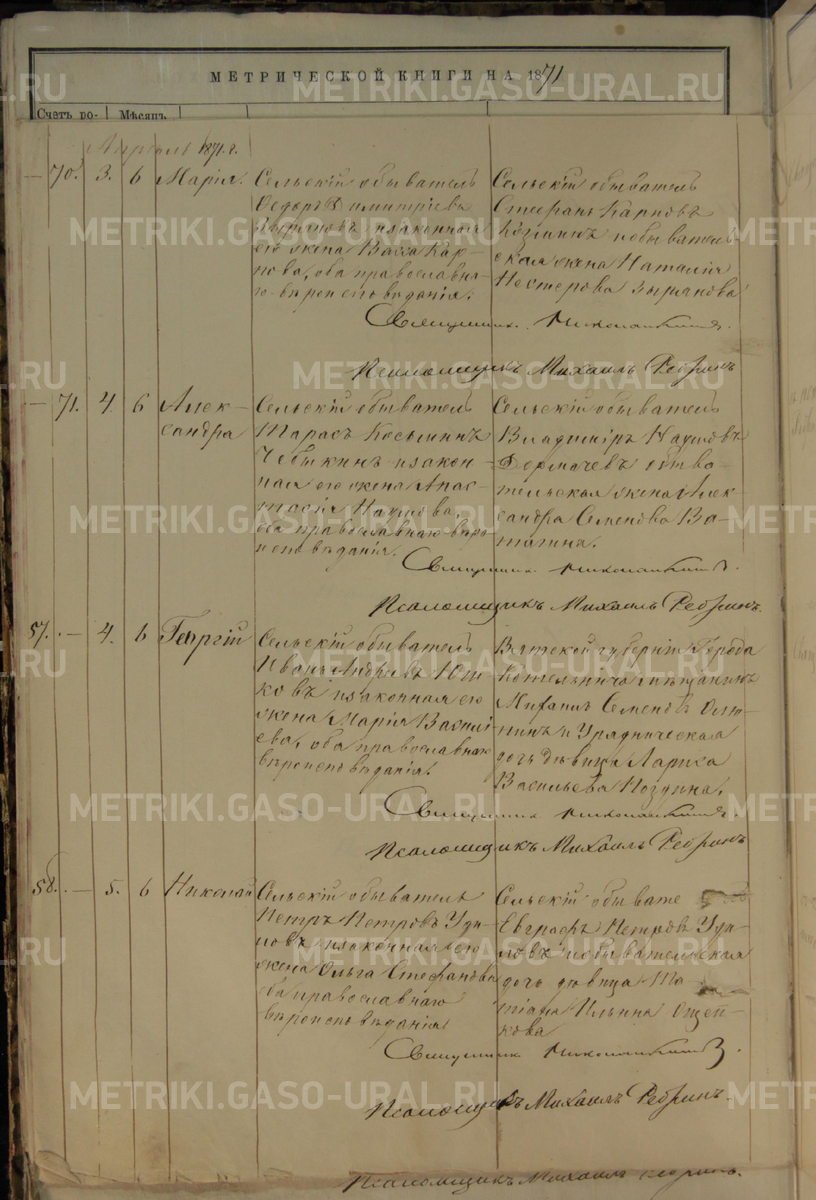 МЕТРИЧЕСКОЙ КНИГИ НА 1871
Счетъ ро-
Мѣсяцъ
Апрѣль 1871 г.
— 70. 3. 6 Марія.
Сельскій обыватель
Ѳедоръ Димитріевъ
и законная
его жена Васса Кар-
пова, оба православна-
го вѣроисповѣданія.
Сельскій обыватель
Стефанъ Карповъ
и обыватель-
ская жена Наталія
Нестерова Зырянова
Священник Николай
Псаломщикъ Михаилъ Ребринъ
— 71. 4. 6 Алек-
сандра
Сельскій обыватель
Тарасъ Косьминъ
и закон-
ная его жена Анас-
тасія Наумова,
оба православнаго вѣро
исповѣданія.
Сельскій обыватель
Владиміръ Наумовъ
обыва-
тельская жена Алек-
сандра Семенова Ва-
Священник Николай
Псаломщикъ Михаилъ Ребринъ.
57. — 4. 6 Георгій
Сельскій обыватель
Иванъ Андреевъ Юш-
ковъ и законная его
жена Марія Василі-
ева, оба православнаго
вѣроисповѣданія.
Вятской губерніи Города
Котельнича мѣщанинъ
Михаилъ Семеновъ
и Урядническая
дочь дѣвица Лариса
Васильева Поздина.
Священник Николай
Псаломщикъ Михаилъ Ребринъ
58. — 5. 6 Николай
Сельскій обыватель
Петръ Петровъ Уди-
ловъ и законная его
жена Ольга Стефанова
оба православнаго
вѣроисповѣданія
Сельскій обывате
Евграфъ Петровъ Уди-
ловъ и обывательская
дочь дѣвица Та-
тіана Ильина Ощеп-
кова
Священник Николай
Псаломщикъ Михаилъ Ребринъ.
Псаломщикъ Михаилъ Ребринъ.
METRIKI.GASO-URAL.RU